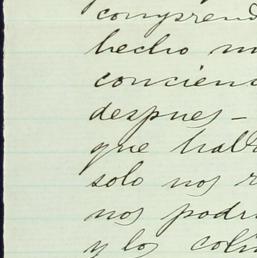 comprend
hecho m
concienc
despues-
que hab
solo nos r
nos podr
y los col